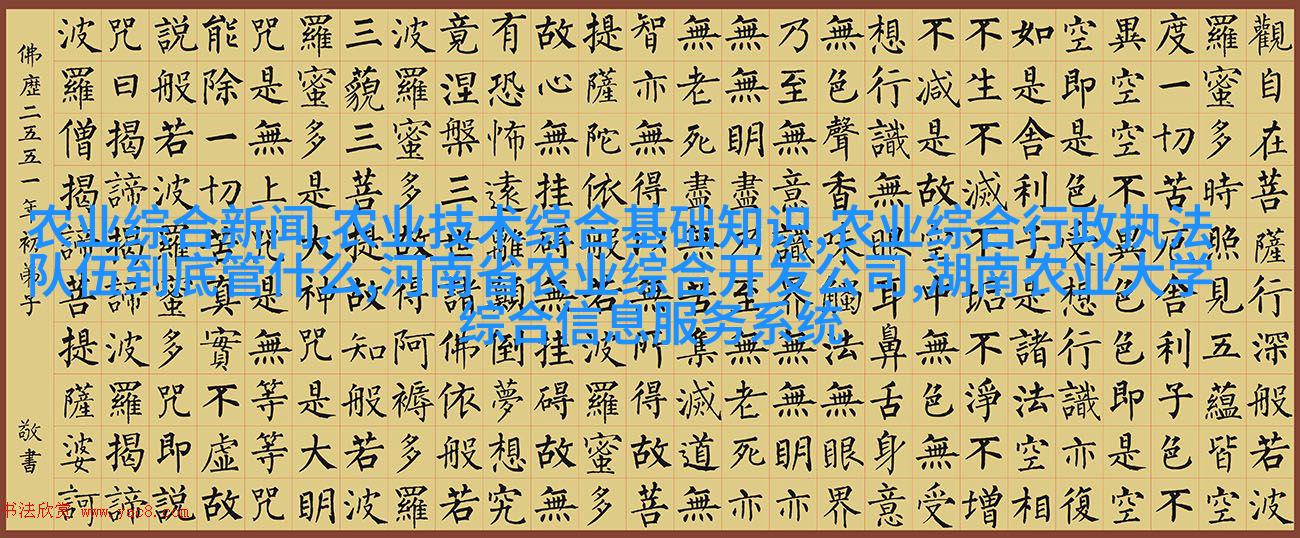 觀自在菩薩行深般若波
羅蜜多時照見五蘊皆空
度一切苦厄舍利子色不
異空空不異色色即是空
空即是色受想行識亦復
如是舍利子是諸法空相
不生不滅不垢不淨不增
不減是故空中無色無受
想行識無眼耳鼻舌身意
無色聲香味觸法無眼界
乃至無意識界無無明亦
無無明盡乃至無老死亦
無老死盡無苦集滅道無
智亦無得以無所得故菩
提薩陀依般若波羅蜜多
故心無挂礙無挂礙故無
有恐怖遠離顛倒夢想究
竟涅槃三世諸佛依般若
波羅蜜多故得阿褥多羅
三藐三菩提故知般若波
羅蜜多是大神咒是大明
咒是無上咒是無等等咒
能除一切苦真實不虛故
說般若波羅蜜多咒即說
咒曰揭諦揭諦波羅揭諦
波羅僧揭諦菩提薩婆訶
佛歷二五五一年初弟子
敬書
农业综合新闻,农业技术综合基础知识,农业综合行政执法
队伍到底管什么,河南省农业综合开发公司,湖南农业大学
综合信息服务系统
书法欣赏 www.yac8.com